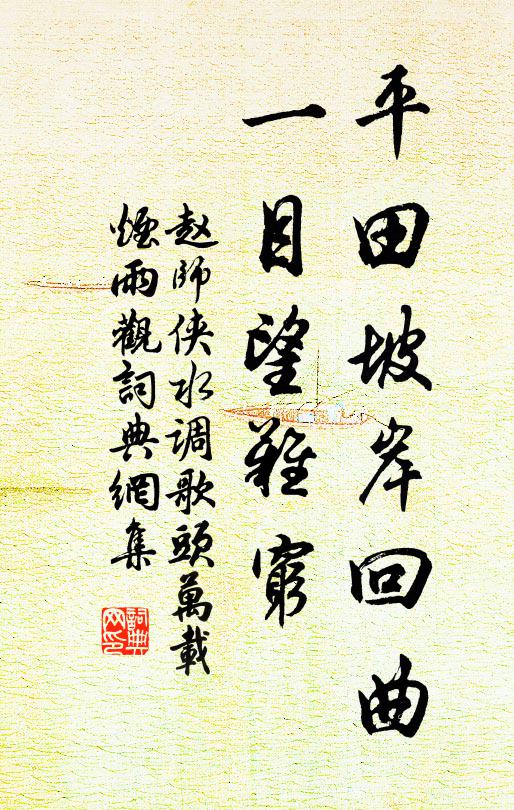 平田坡岸回曲
一目望難窮
赵師俠水调歌頭萬載
煙雨觀詞典網集
詞典
网印